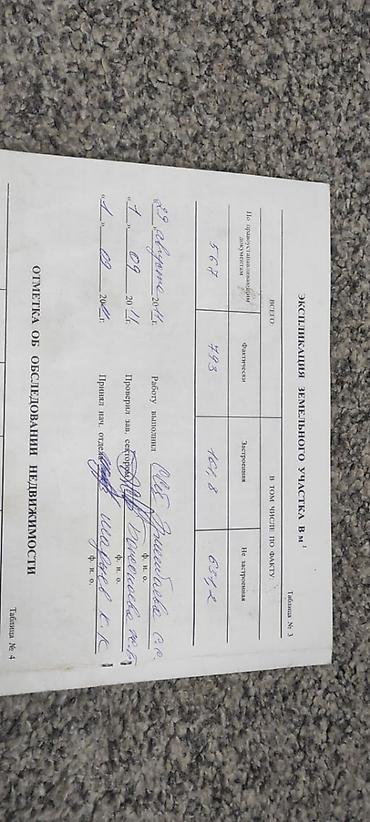 Таблица № 3
ЭКСПЛИКАЦИЯ ЗЕМЕЛЬНОГО УЧАСТКА В м²
ВСЕГО В ТОМ ЧИСЛЕ ПО ФАКТУ:
По правоустанавливающим документам Фактически Застроенная Не застроенная
567 793 161,8 631,2
"29" августа 2011 г. Работу выполнил С.О.
ф. и. о.
"1" 09 2011 г. Проверил зав. сектором
ф. и. о.
"1" 09 2011 г. Принял нач. отдела К.К.
ф. и. о.
ОТМЕТКА ОБ ОБСЛЕДОВАНИИ НЕДВИЖИМОСТИ
Таблица № 4